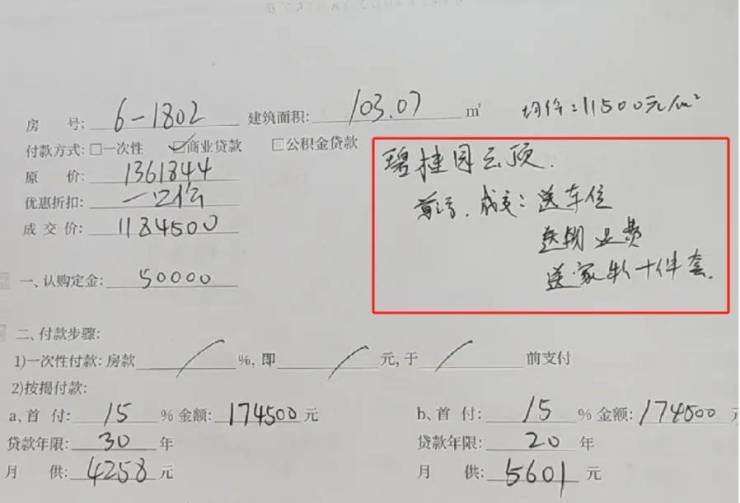 房 号: 6-1802 建筑面积: 103.07 ㎡ 均价:11500元/m²
付款方式: □一次性 ☑商业贷款 □公积金贷款
原 价: 1361844
优惠折扣: 一口价
成 交 价: 1184500
碧桂园云顶.
成交: 送车位
送物业费
送家电十件套.
一、认购定金: 50000
二、付款步骤:
1)一次性付款: 房款 / %, 即 / 元, 于 / 前支付
2)按揭付款:
a、首 付: 15 % 金额: 174500 元
贷款年限: 30 年
月 供: 4258 元
b、首 付: 15 % 金额: 174500
贷款年限: 20 年
月 供: 5601 元